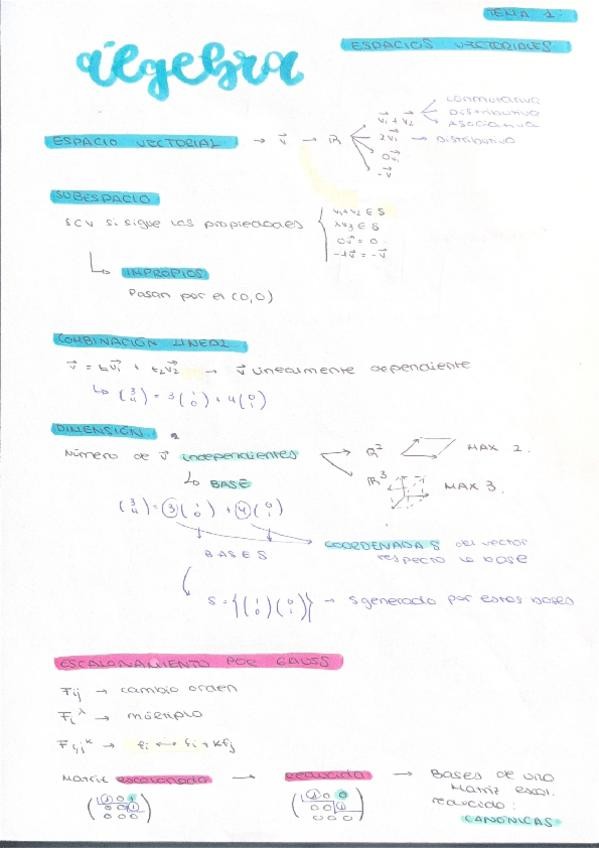 TEMA 1:
álgebra
ESPACIOS VECTORIALES
ESPACIO VECTORIAL → v⃗ → ℝ
v⃗₁ + v⃗₂
conmutativa
Distributiva
Asociativa
λv⃗₁ → Distributiva
0v⃗₁
-v⃗
SUBESPACIO
SCV si sigue las propiedades
v₁+v₂ ∈ S
λv₃ ∈ S
0v⃗ = 0
-1v⃗ = -v⃗
IMPROPIOS
Pasan por el (0,0)
COMBINACIÓN LINEAL
v⃗ = t₁v⃗₁ + t₂v⃗₂ → v⃗ linealmente dependiente
↳ (3 4) = 3(1 0) + 4(0 1)
DIMENSIÓN
Número de v⃗ independientes
ℝ² MAX 2.
ℝ³ MAX 3.
↳ BASE
(3 4) = 3(1 0) + 4(0 1)
BASES
COORDENADAS del vector
respecto la base
S = {(1 0)(0 1)} → S generado por estas bases
ESCALONAMIENTO POR GAUSS
Fij → cambio orden
Fi^λ → múltiplo
Fij^k → fi ↔ fi + kfj
Matriz escalonada → reducida → Bases de una
Matriz escal.
reducida:
CANÓNICAS
(1 0 1
0 0 1
0 0 0)
(1 0 0
0 0 1
0 0 0)